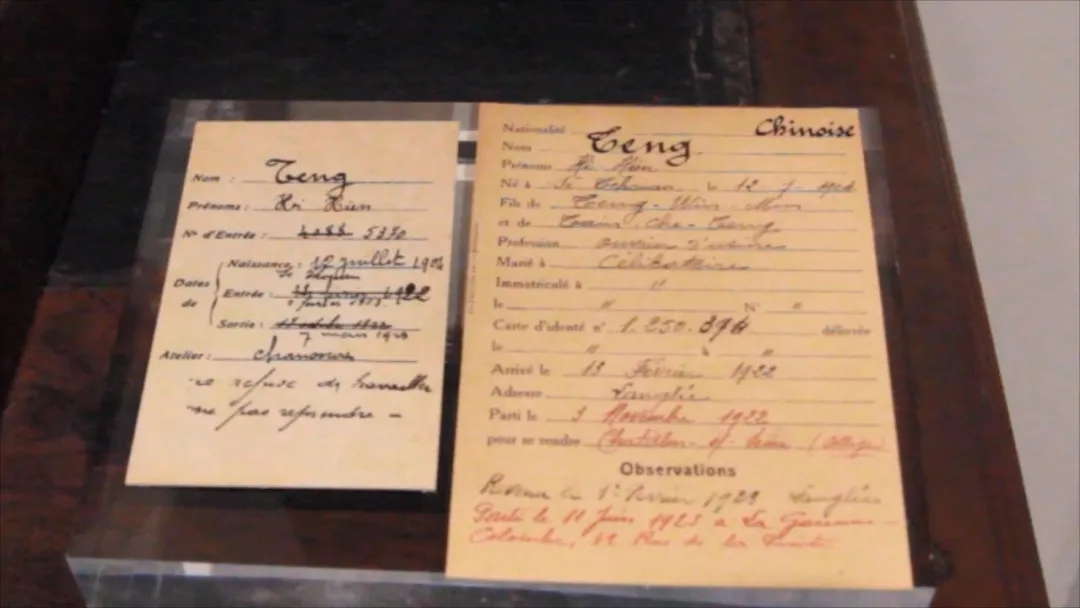 Nom : Teng
Prénoms : Hi Hien
N° d'Entrée : 4088 5370
Dates de
Naissance : 12 juillet 1904
Entrée : 1922
Sortie : 7 mars 1923
Atelier : Chaussure
refuse de travailler
ne pas reprendre -
Nationalité Chinoise
Nom Teng
Prénoms Hi Hien
Né à le 12 - 7 - 1904
Fils de Teng - Win - Min
et de Tain - Che - Teng
Profession ouvrier d'usines
Marié à Célibataire
Immatriculé à "
le " N° "
Carte d'identé n° 1.250.394 délivrée
le " à "
Arrivé le 13 Février 1922
Adresse Langlée
Parti le 3 Novembre 1922
pour se rendre Chatillon - s/ - Seine (Collège)
Observations
Revenu le 1er Février 1923 Langlée
Parti le 11 Juin 1923 a La Garenne -
Colombes, Rue de la Pointe